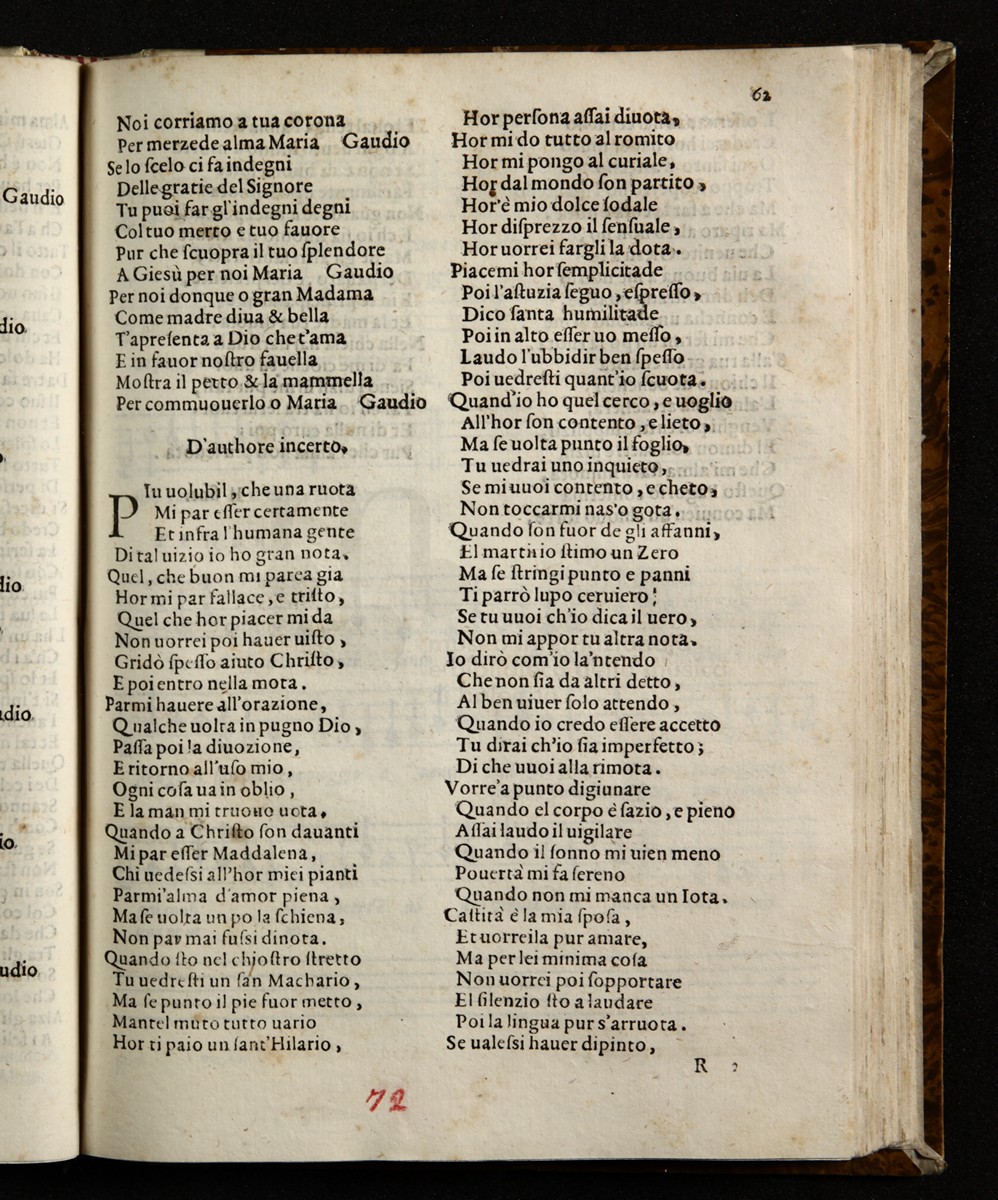 Gaudio
dio
lio
udio
io
udio
62
Noi corriamo a tua corona
Per merzede alma Maria Gaudio
Se lo ſcelo ci fa indegni
Delle gratie del Signore
Tu puoi far gl'indegni degni
Col tuo merto e tuo fauore
Pur che ſcuopra il tuo ſplendore
A Giesù per noi Maria Gaudio
Per noi donque o gran Madama
Come madre diua & bella
T'apreſenta a Dio che t'ama
E in fauor noſtro fauella
Moſtra il petto & la mammella
Per commuouerlo o Maria Gaudio
D'authore incerto,
PIu uolubil, che una ruota
Mi par eſſer certamente
Et infra l'humana gente
Di tal uizio io ho gran nota.
Quel, che buon mi parea gia
Hor mi par fallace, e triſto,
Quel che hor piacer mi da
Non uorrei poi hauer uiſto,
Gridò ſpeſſo aiuto Chriſto,
E poi entro nella mota.
Parmi hauere all'orazione,
Qualche uolta in pugno Dio,
Paſſa poi la diuozione,
E ritorno all'uſo mio,
Ogni coſa ua in oblio,
E la man mi truouo uota.
Quando a Chriſto ſon dauanti
Mi par eſſer Maddalena,
Chi uedeſsi all'hor miei pianti
Parmi'alma d'amor piena,
Ma ſe uolta un po la ſchiena,
Non par mai fuſsi dinota.
Quando ſto nel chioſtro ſtretto
Tu uedreſti un ſan Machario,
Ma ſe punto il pie fuor metto,
Mantel muto tutto uario
Hor ti paio un ſant'Hilario,
Hor perſona aſſai diuota,
Hor mi do tutto al romito
Hor mi pongo al curiale,
Hor dal mondo ſon partito,
Hor'è mio dolce ſodale
Hor diſprezzo il ſenſuale,
Hor uorrei fargli la dota.
Piacemi hor ſemplicitade
Poi l'aſtuzia ſeguo, eſpreſſo,
Dico ſanta humilitade
Poi in alto eſſer uo meſſo,
Laudo l'ubbidir ben ſpeſſo
Poi uedreſti quant'io ſcuota.
Quand'io ho quel cerco, e uoglio
All'hor ſon contento, e lieto,
Ma ſe uolta punto il foglio,
Tu uedrai uno inquieto,
Se mi uuoi contento, e cheto,
Non toccarmi nas'o gota.
Quando ſon fuor de gli affanni,
El martirio ſtimo un Zero
Ma ſe ſtringi punto e panni
Ti parrò lupo ceruiero;
Se tu uuoi ch'io dica il uero,
Non mi appor tu altra nota.
Io dirò com'io la'ntendo
Che non ſia da altri detto,
Al ben uiuer ſolo attendo,
Quando io credo eſſere accetto
Tu dirai ch'io ſia imperfetto;
Di che uuoi alla rimota.
Vorre'a punto digiunare
Quando el corpo è ſazio, e pieno
Aſſai laudo il uigilare
Quando il ſonno mi uien meno
Pouertà mi fa ſereno
Quando non mi manca un Iota.
Caſtità è la mia ſpoſa,
Et uorreila pur amare,
Ma per lei minima coſa
Non uorrei poi ſopportare
El ſilenzio ſto a laudare
Poi la lingua pur s'arruota.
Se ualeſsi hauer dipinto,
R 2
72